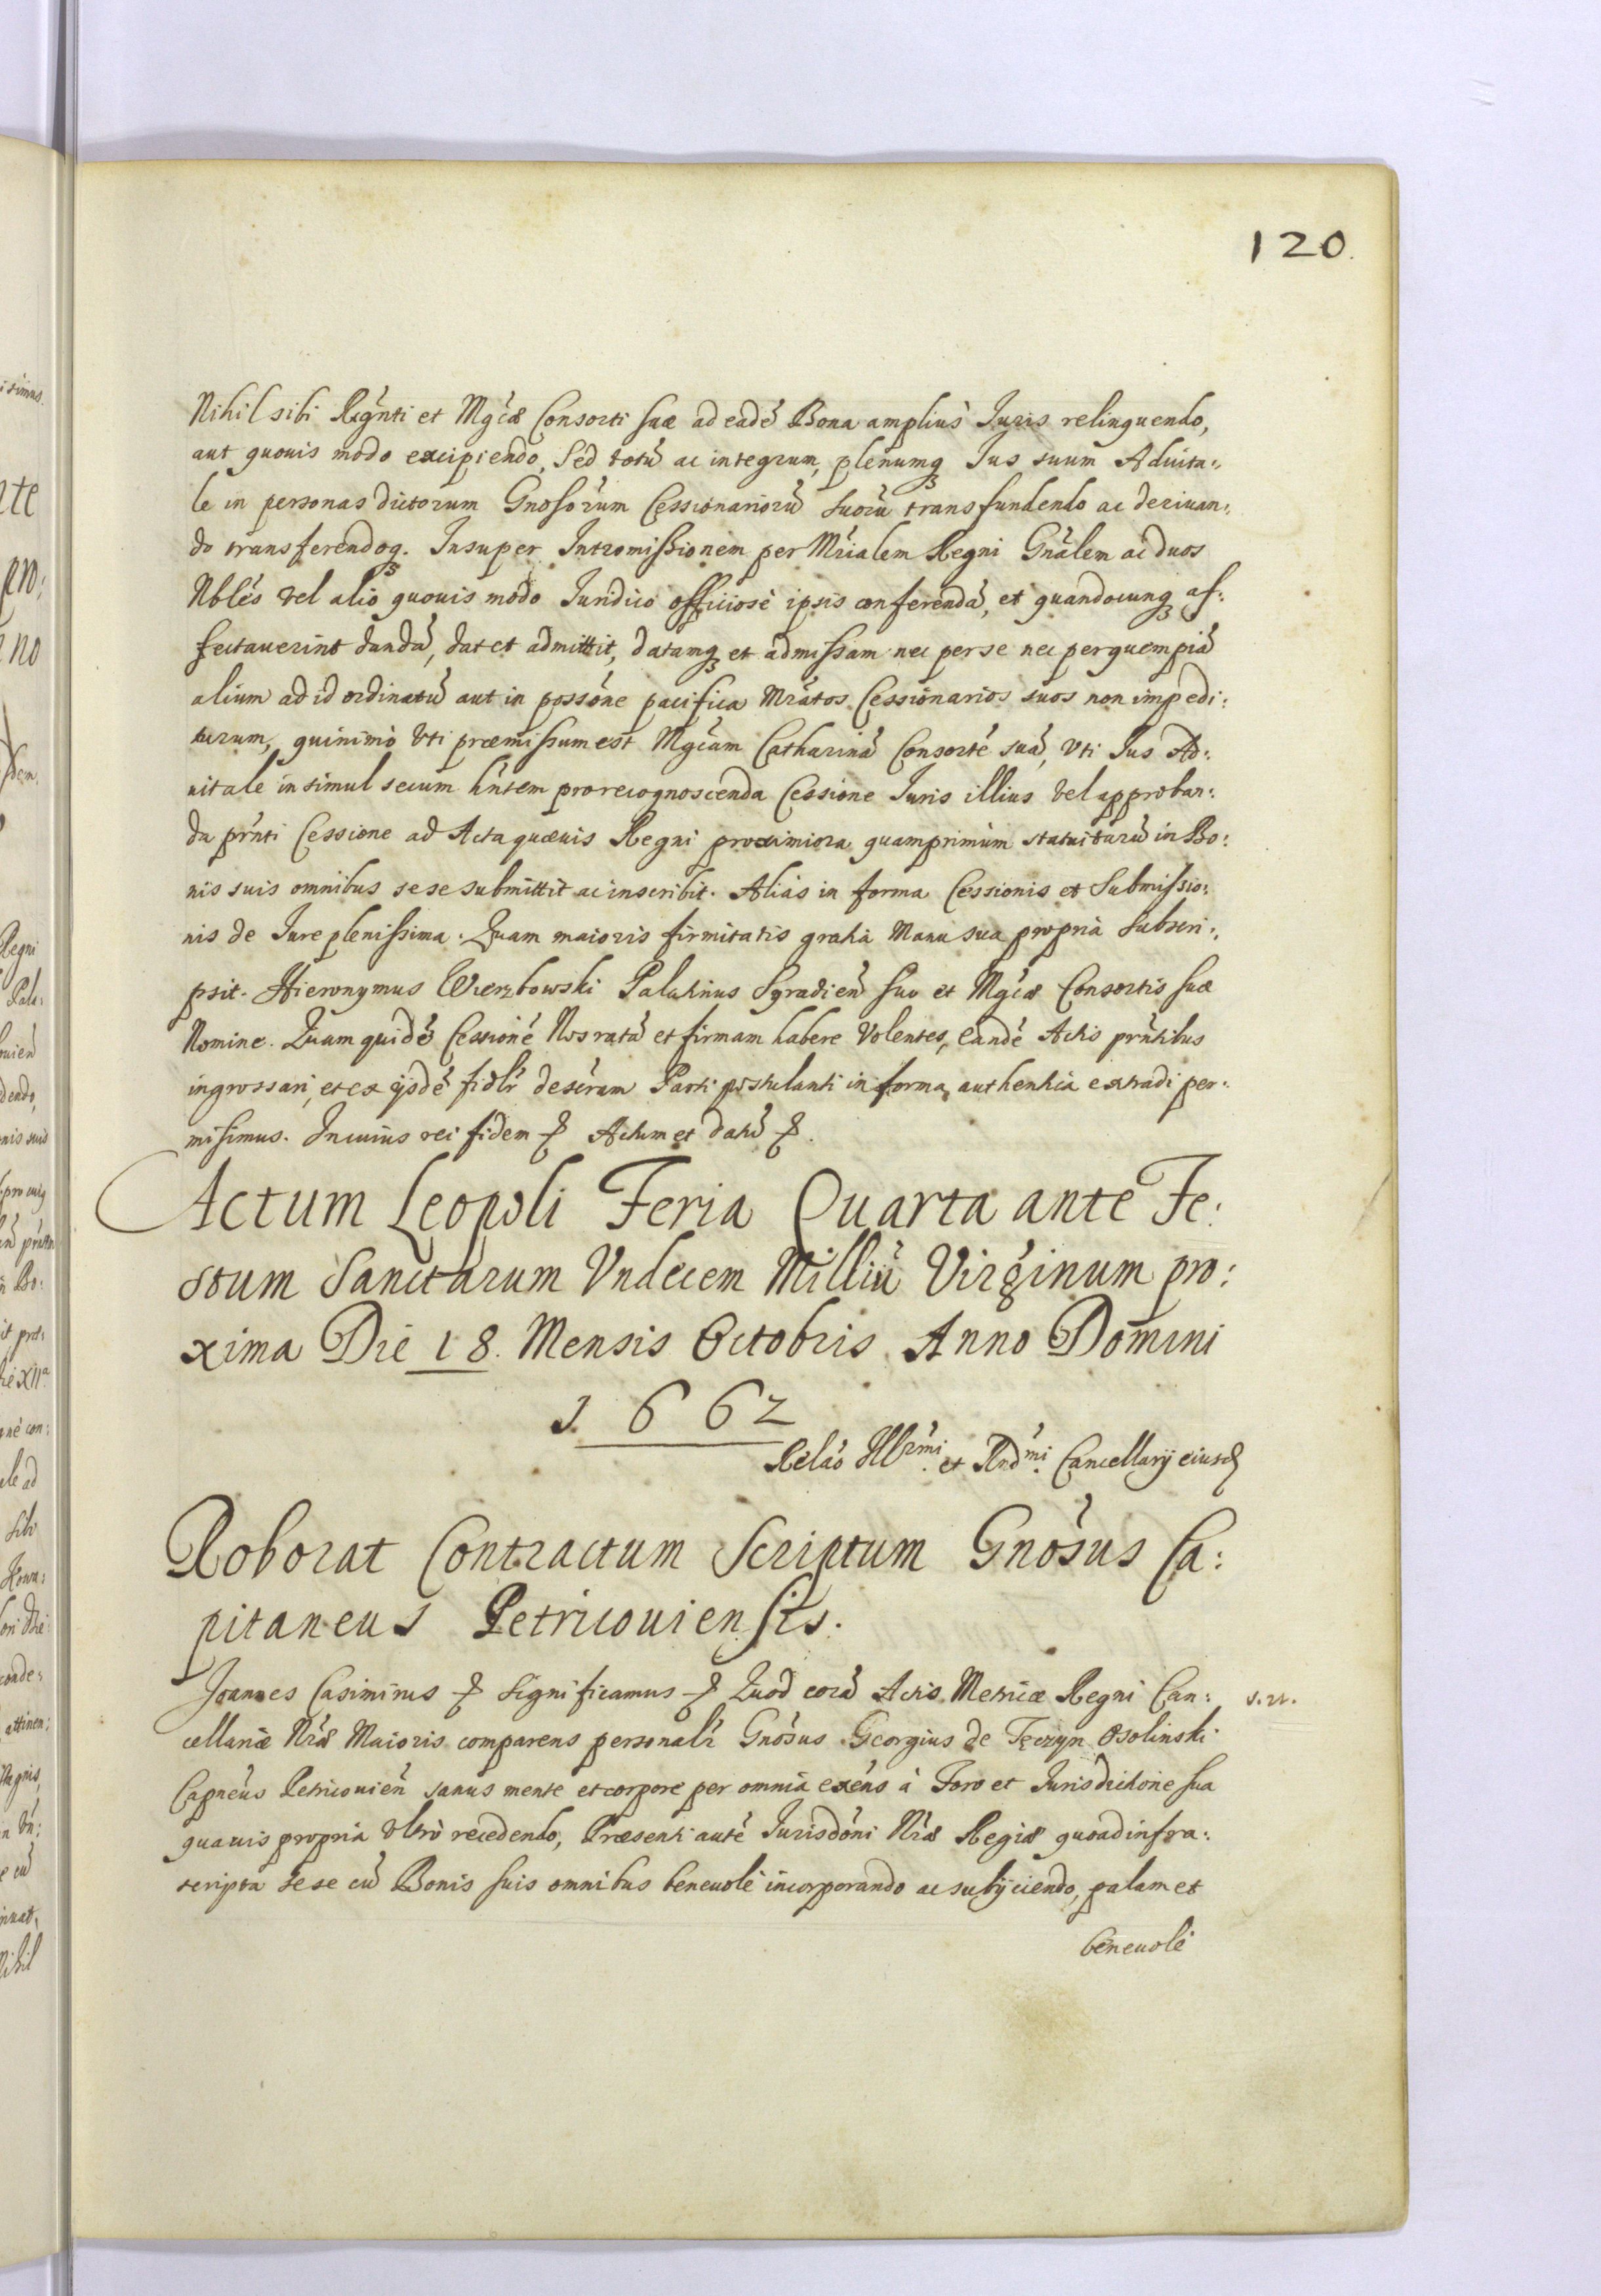 120.
Nihil sibi Rĕgnti et Mgćæ Consorti suæ ad eadé Bona ampliùs Iuris relinquendo,
aut quouis modo excipiendo, Sed totŭ ac integrum, plenumq Ius suum Aduita:
le in personas dictorum Gnosórum Cessionariorŭ suorŭ transfundendo ac deriuan:
do transferendoq. Insuper Intromissionem per Mrialem Regni Gnálem ac duos
Nblés vel alio quouis modo Iuridico officiosè ipsis conferendă, et quandocunq af:
fectauerint dandă, dat et admittit, datamq et admissam nec per se nec per quempiă
alium ad id ordinatŭ aut in possóne pacifica Mrátos Cessionarios suos non impedi:
turum, quinimò vti præmissum est Mgćam Catharină Consorté suă, vti Ius Ad:
uitale insimul secum hńtem pro recognoscenda Cessione Iuris illius vel approban:
da prńti Cessione ad Acta quæuis Regni proximiora quamprimùm statuiturŭ in Bo:
nis suis omnibus sese submittit ac inscribit. Aliàs in forma Cessionis et Submissio:
nis de Iure plenissima. Quam maioris firmitatis gratià Manu sua proprià Subscri:
psit. Hieronymus Wierzbowski Palatinus Syradień suo et Mgćæ Consortis suæ
Nomine. Quam quidé Cessioné Nos rată et firmam habere Volentes, eandé Actis prńtibus
ingrossari, et ex ijsdé fidlŕ descŕam Parti postulanti in forma authentica extradi per:
misimus. In cuius rei fidem &. Actum et datŭ &.
Actum Leopoli Feria Quarta ante Fe:
stum Sanctarum Vndecem Milliŭ Virginum pro:
xima Die 18. Mensis Octobris Anno Domini
1662
Reláo Illrmí et Rndmí Cancellarij eiusd
Roborat Contractum Scriptum Gnósus Ca:
pitaneus Petricouiensis.
Joannes Casimirus & Significamus & Quod coră Actis Metricæ Regni Can:
cellariæ Nŕæ Maioris comparens personalŕ Gnósus Georgius de Tęczyn Osolinski
Capnéus Petricouień sanus mente et corpore per omnia exéns à Foro et Iurisdictione sua
quauis propria vltrò recedendo, Præsenti auté Iurisdóni Nŕæ Regiæ quoad infra:
scripta sese cŭ Bonis suis omnibus beneuolè incorporando ac subijciendo, palam et
beneuolè